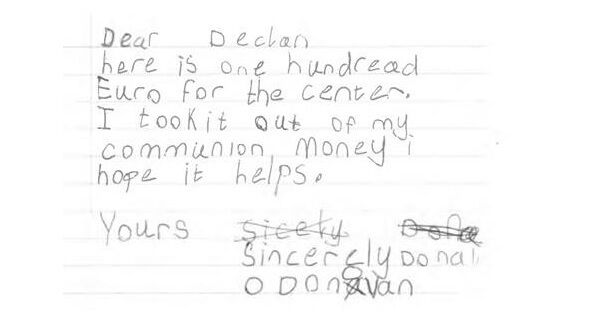 Dear Declan
here is one hundread
Euro for the center.
I took it out of my
communion money i
hope it helps.
Yours sicety
Sincerely Donal
O Donavan